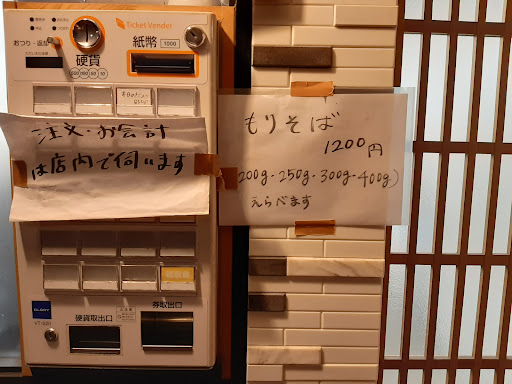 Ticket Vender
おつり・返却
紙幣
1000
硬貨
500 100 50 10
注文・お会計
は店内で伺います
もりそば
1200円
200g・250g・300g・400g)
えらべます
GLORY
硬貨取出口
券取出口